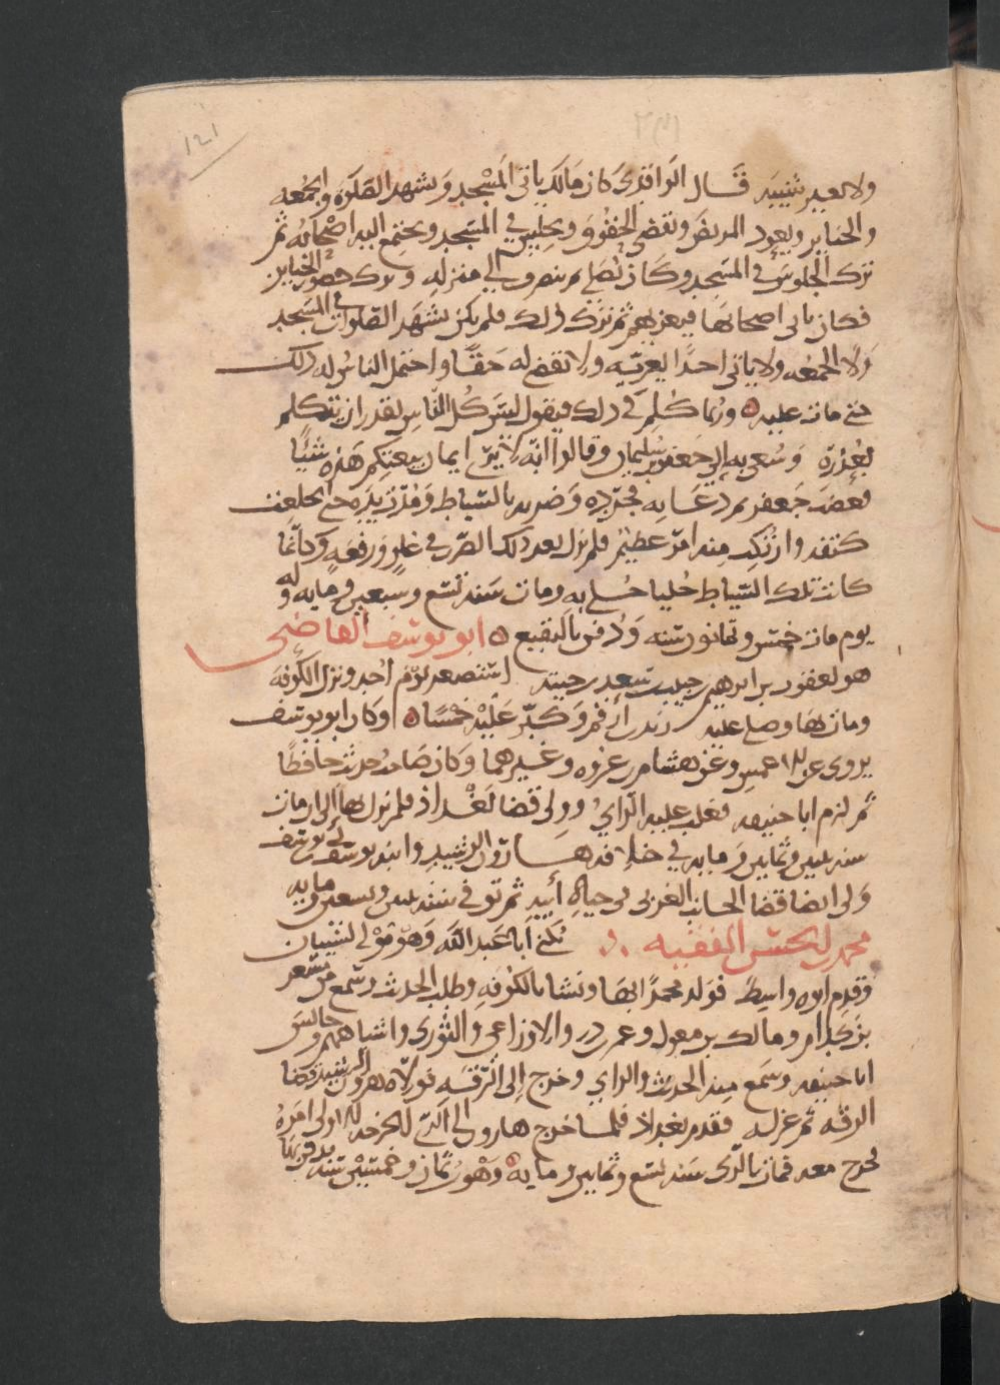 ولا يغير شيبه قال الواقدى كان مالك ياتى المسجد ويشهد الصلوة والجمعه
والجنايز ويعود المريض ويقضى الحقوق ويجلس في المسجد ويجتمع اليه اصحابه ثم
ترك الجلوس في المسجد وكان يصلي ثم ينصرف الى منزله وترك حضور الجنايز
فكان ياتى اصحابها فيعزيهم ثم ترك ذلك فلم يكن يشهد الصلوات في المسجد
ولا الجمعه ولا ياتى احدا يعزيه ولا يقضي له حقا واحتمل الناس له ذلك
حتى مات عليه ه وربما كلم في ذلك فيقول ليس كل الناس يقدر ان يتكلم
بعذره وسعى به إلى جعفر بن سليمان وقالوا انه لا يرى ايمان بيعتكم هذه شيئا
فغضب جعفر ثم دعا به فجرده وضربه بالسياط ومدت يده حتى انخلعت
كتفه وارتكب منه امر عظيم فلم يزل بعد ذلك الضرب في علو ورفعه وكانما
كانت تلك السياط حليا حلى به ومات سنه تسع وسبعين ومايه وله
يوم مات خمس وثمانون سنه ودفن بالبقيع ه ابو يوسف القاضى
هو يعقوب بن ابرهيم بن حبيب بن سعد بن حبته استصغر يوم احد ونزل الكوفه
ومات بها وصلى عليه زيد بن ارقم وكبر عليه خمسا ه وكان ابو يوسف
يروى عن الاعمش وعن هشام بن عروه وغيرهما وكان صاحب حديث حافظا
ثم لزم ابا حنيفه فغلب عليه الراي وولى قضا بغداذ فلم يزل بها الى ان مات
سنه اثنين وثمانين ومايه في خلافه هارون الرشيد وابنه يوسف بن ابى يوسف
ولى ايضا قضا الجانب الغربى فى حياة أبيه ثم توفى سنه اثنين وتسعين ومايه
محمد بن الحسن الفقيه يكنى أبا عبد الله وهو مولى لشيبان
وقدم ابوه واسط فولد محمد ابها ونشا بالكوفه وطلب الحديث وسمع من مسعر
بن كدام ومالك بن مغول وعمر بن ذر والاوزاعى والثورى واشباههم وجالس
ابا حنيفه وسمع منه الحديث والراي وخرج إلى الرقه فولاه هرون الرشيد قضا
الرقه ثم عزله فقدم بغداذ فلما خرج هارون الى الرى الخرجه الاولى امره
فخرج معه فمات بالرى سنه تسع وثمانين ومايه ه وهو بن ثمان وخمسين سنه